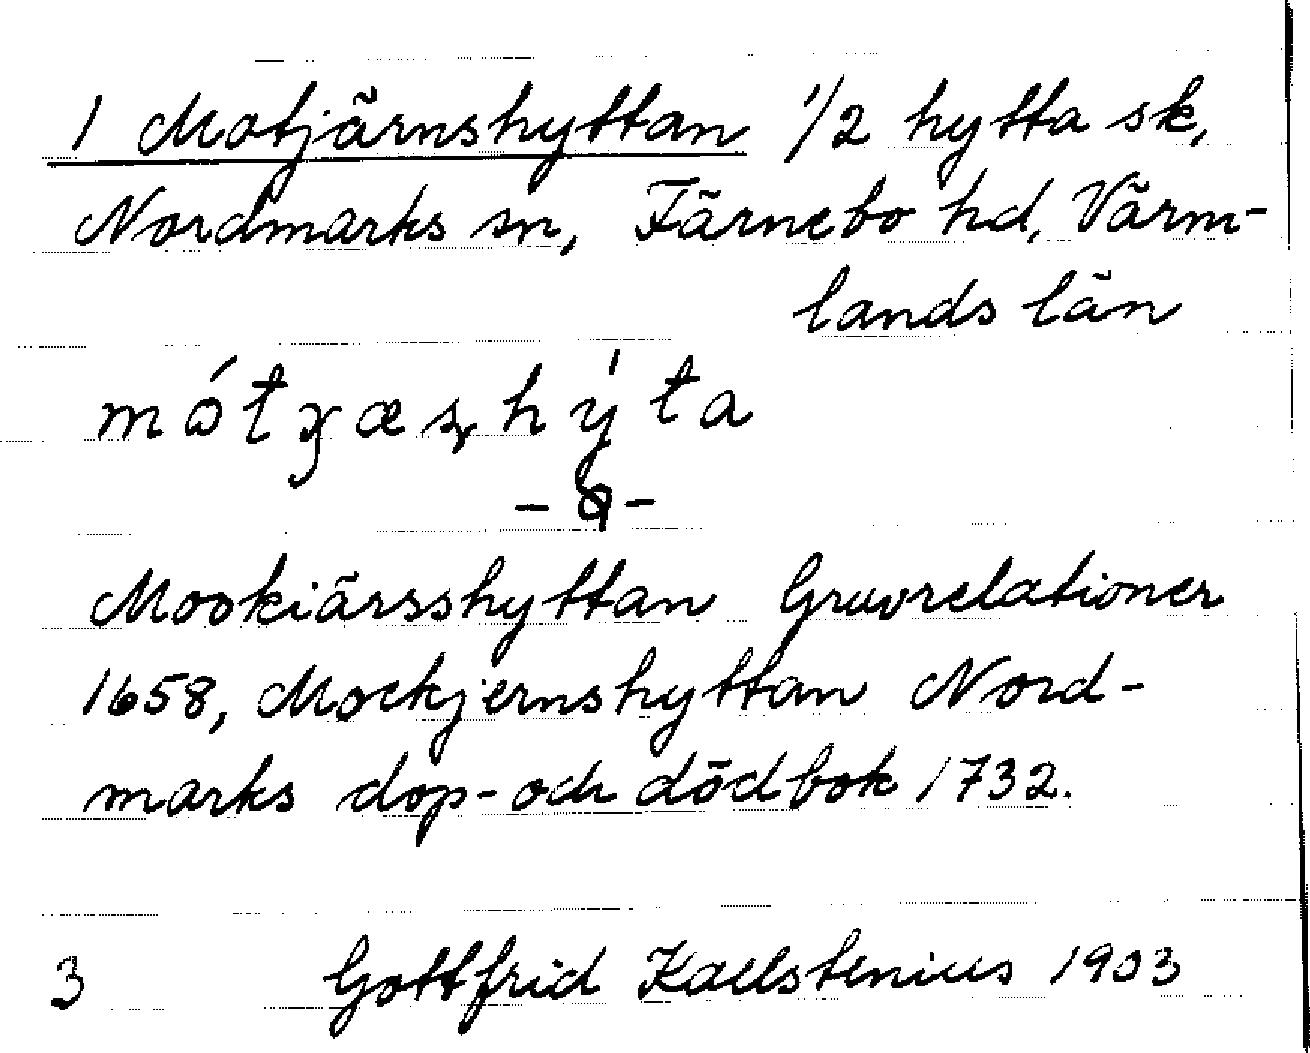 1 Motjärnshyttan 1/2 hytta sk,
Nordmarks sn, Färnebo hd, Värm-
lands län
Mookiärsshyttan Gruvrelationer
1658, Mockjernshyttan Nord-
marks dop- och dödbok 1732.
3 Gottfrid Kallstenius 1903